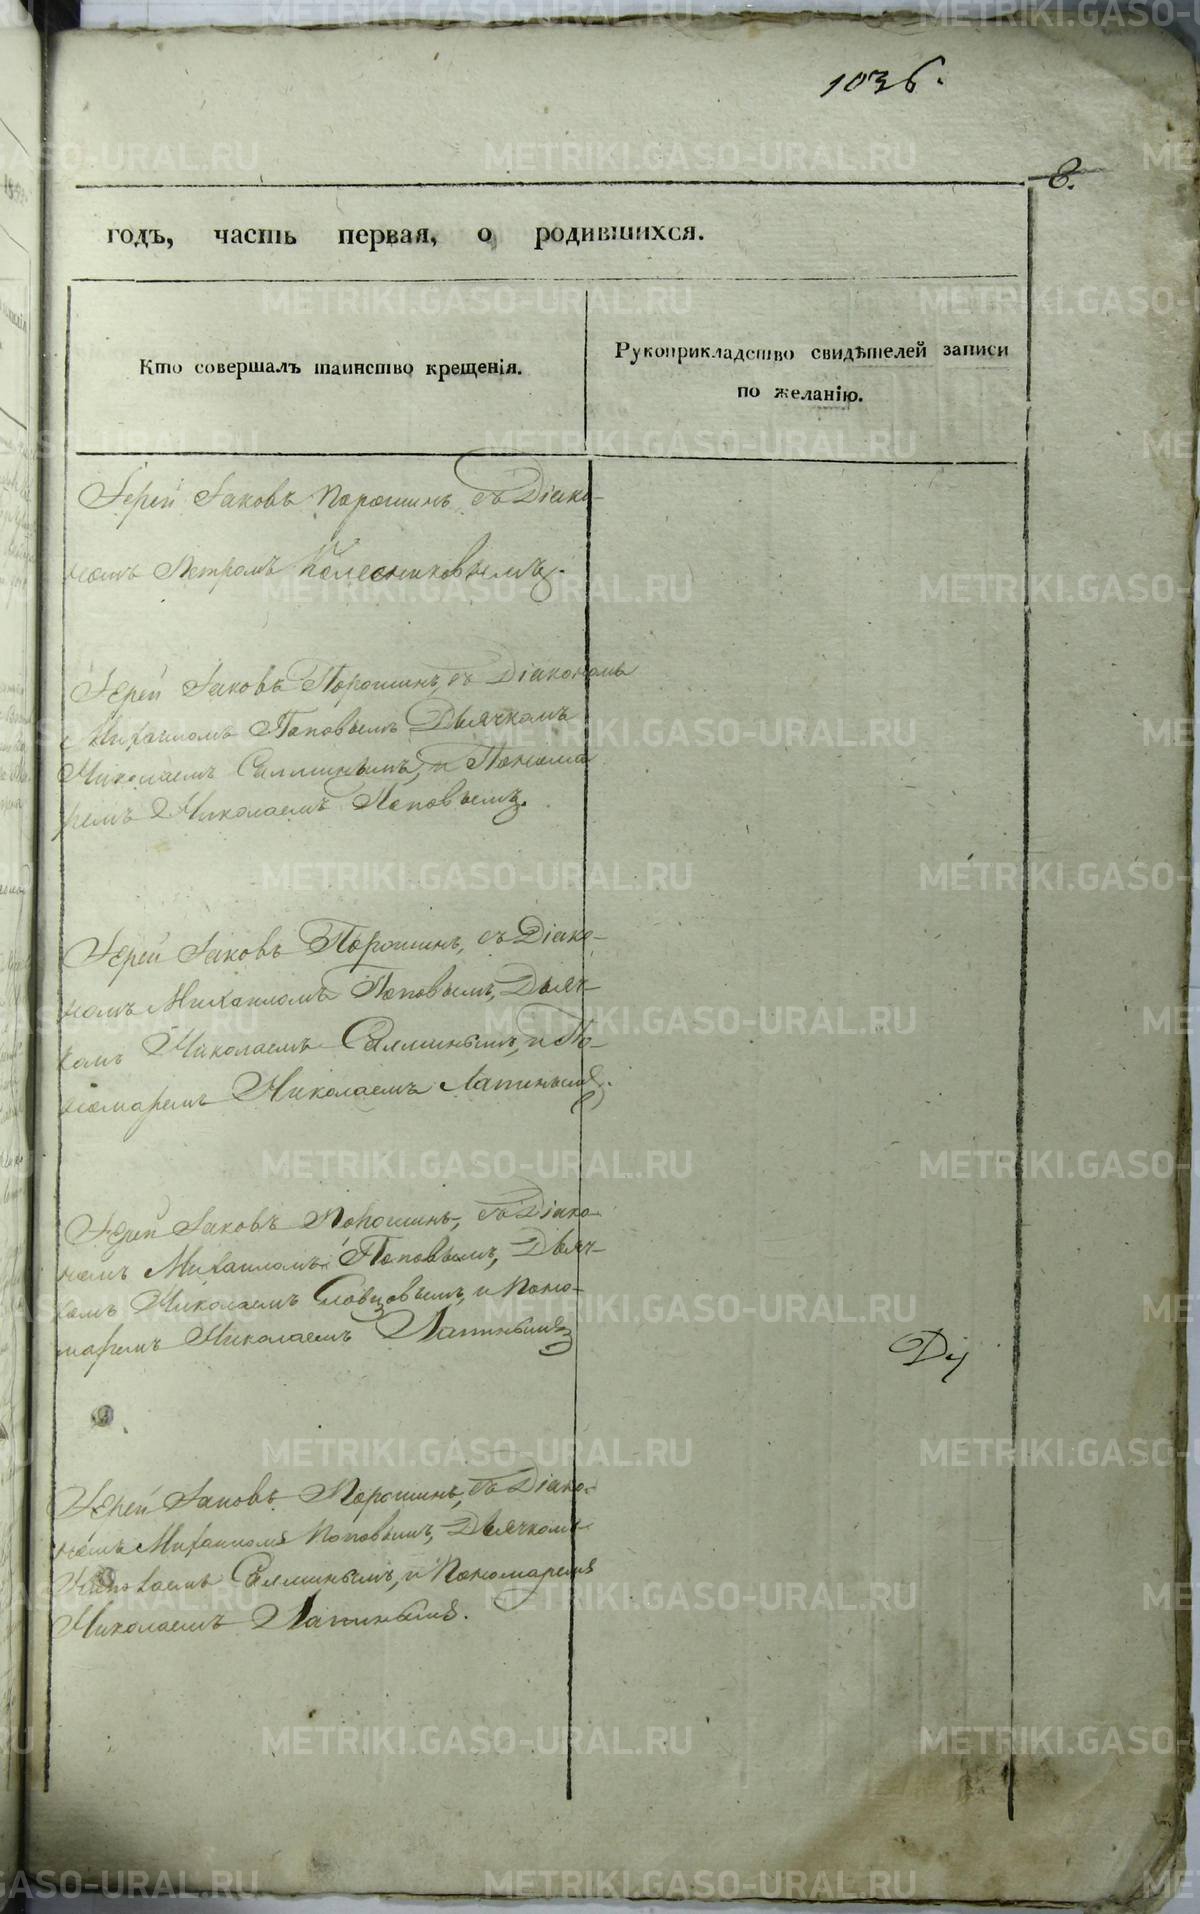 1036.
8.
годъ, часть первая, о родившихся.
Кто совершалъ таинство крещенія.
Рукоприкладство свидѣтелей записи
по желанію.
Іерей Іаковъ Порошинъ, съ Діако-
номъ Петромъ Колесниковымъ.
Іерей Іаковъ Порошинъ, съ Діакономъ
Михаиломъ Поповымъ, Дьячкомъ
Николаемъ и Понома
ремъ Николаемъ Поповымъ.
Іерей Іаковъ Порошинъ, съ Діако-
номъ Михаиломъ Поповымъ, Дьяч-
комъ Николаемъ и По-
номаремъ Николаемъ Лапинымъ.
Іерей Іаковъ Порошинъ, съ Діако
номъ Михаиломъ Поповымъ, Дьяч-
комъ Николаемъ Словцовымъ, и Поно-
маремъ Николаемъ Лапинымъ
Іерей Іаковъ Порошинъ, съ Діако-
номъ Михаиломъ Поповымъ, Дьячкомъ
Николаемъ и Пономаремъ
Николаемъ Лапинымъ.
METRIKI.GASO-URAL.RU